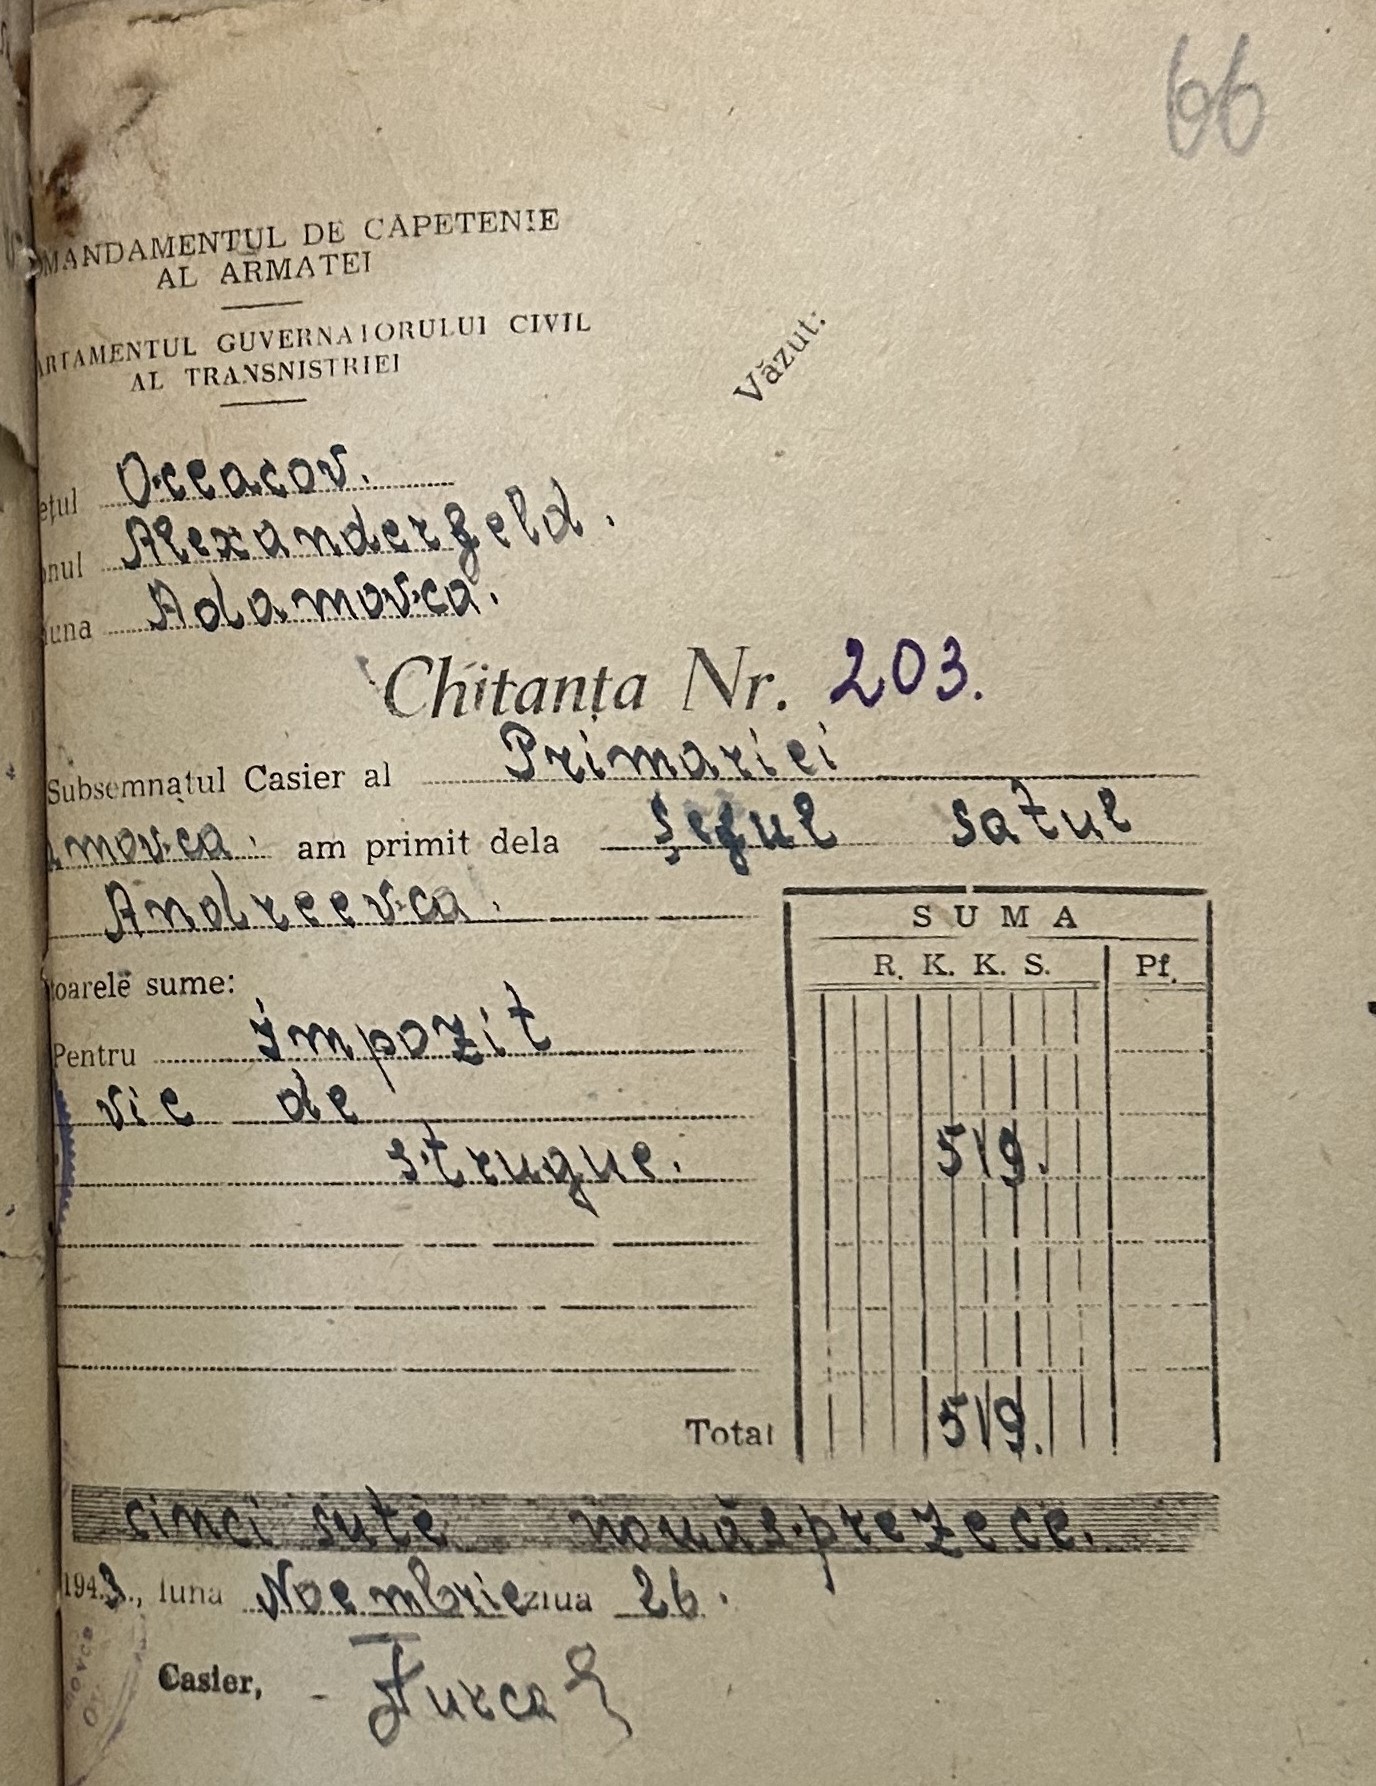 66
MANDAMENTUL DE CAPETENIE
AL ARMATEI
ARTAMENTUL GUVERNATORULUI CIVIL
AL TRANSNISTRIEI
Văzut:
ețul Oceacov.
onul Alexanderfeld.
una Adamovca.
Chitanța Nr. 203.
Subsemnatul Casier al Primariei
amovca. am primit dela șeful satul
Andreevca.
SUMA
R. K. K. S. Pf.
toarele sume:
Pentru impozit
vie de
strugue. 519.
Total 519.
cinci sute nouăsprezece.
1943., luna Noembrie ziua 26.
Casier,